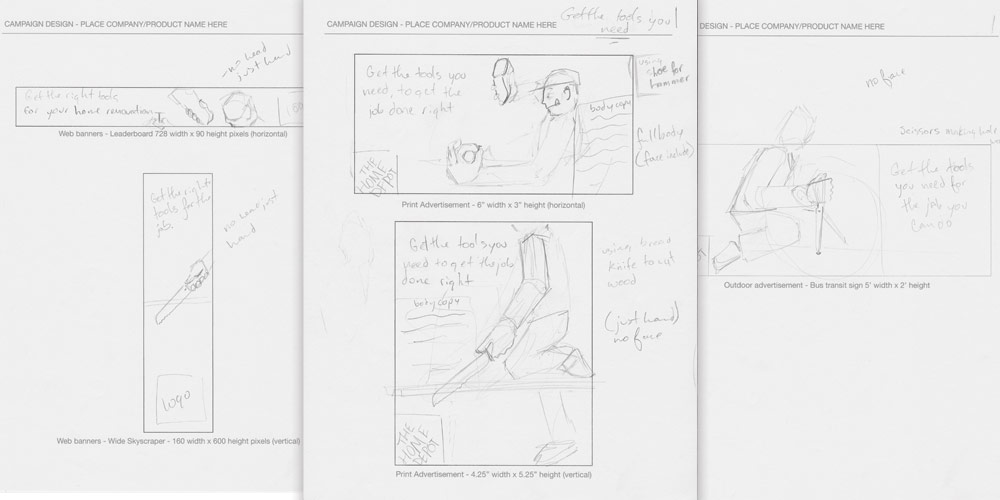 CAMPAIGN DESIGN - PLACE COMPANY/PRODUCT NAME HERE
-no head
just hand
Get the right tools
for your home renovation
Web banners - Leaderboard 728 width x 90 height pixels (horizontal)
Get the right
tools for the
job.
just
hand
Logo
Web banners - Wide Skyscraper - 160 width x 600 height pixels (vertical)
CAMPAIGN DESIGN - PLACE COMPANY/PRODUCT NAME HERE
Get the tools you
need
Get the tools you
need, to get the
job done right
using
shoe for
hammer
body copy
fullbody
(face include)
THE
HOME
DEPOT
Print Advertisement - 6" width x 3" height (horizontal)
Get the tools you
need to get the job
done right
body copy
using bread
knife to cut
wood
(just hand)
no face
THE
HOME
DEPOT
Print Advertisement - 4.25" width x 5.25" height (vertical)
DESIGN - PLACE COMPANY/PRODUCT NAME HERE
no face
Scissors making hole
Get the tools
you need for
the job you
can do
Outdoor advertisement - Bus transit sign 5' width x 2' height